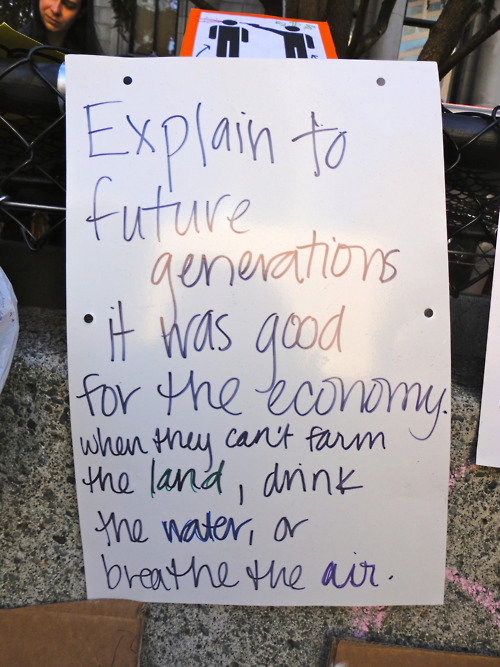 Explain to
future
generations
it was good
for the economy.
when they can't farm
the land, drink
the water, or
breathe the air.